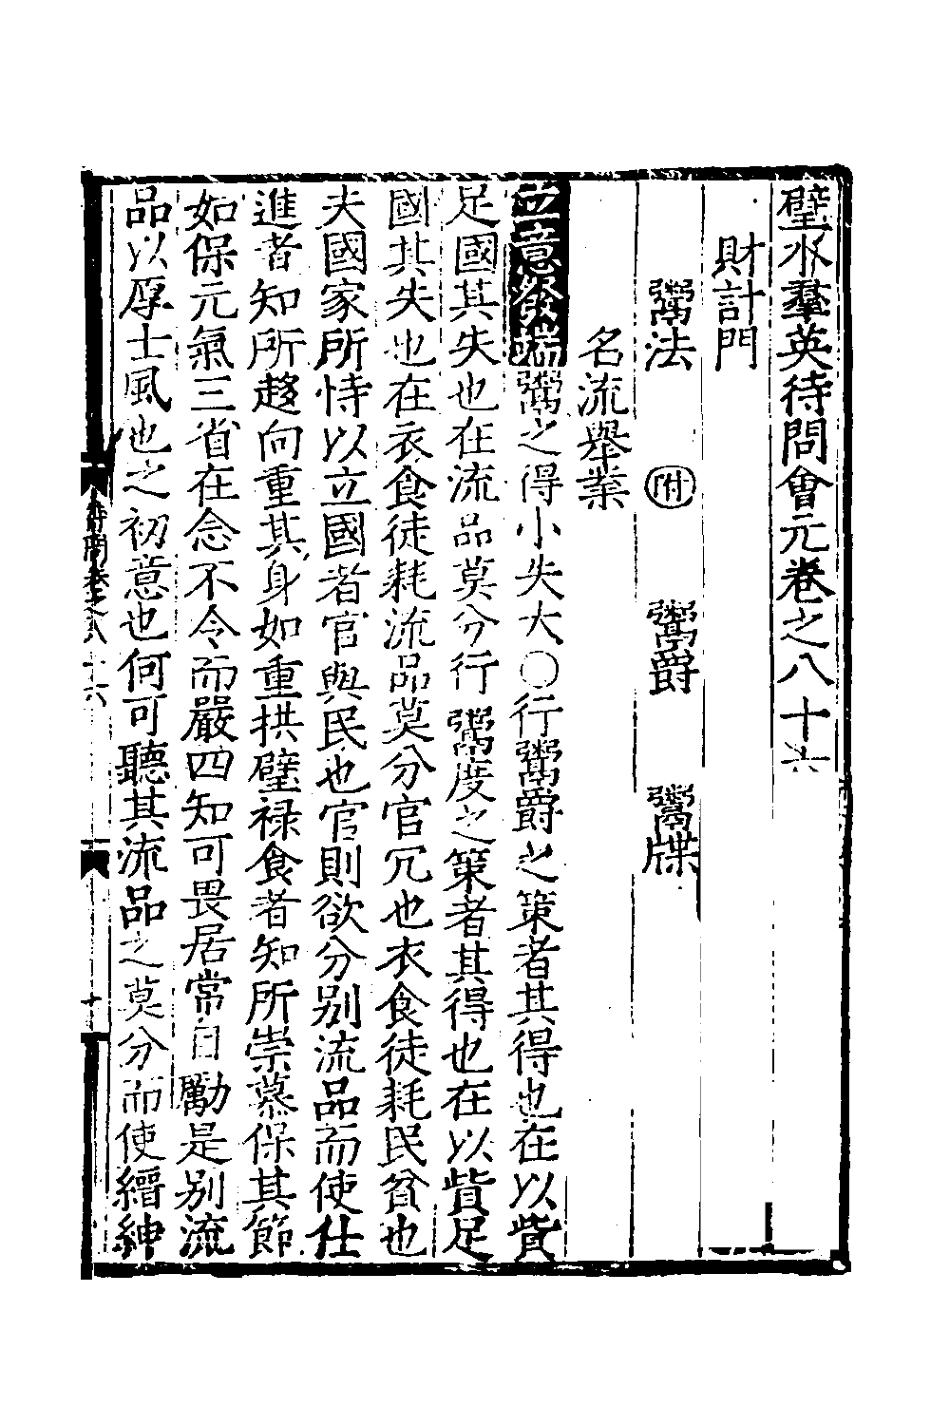 璧水羣英待問會元卷之八十六
財計門
鬻法 附 鬻爵 鬻牒
名流舉業
立意發端鬻之得小失大○行鬻爵之策者其得也在以貲
足國其失也在流品莫分行鬻度之策者其得也在以貲足
國其失也在衣食徒耗流品莫分官冗也衣食徒耗民貧也
夫國家所恃以立國者官與民也官則欲分别流品而使仕
進者知所趍向重其身如重拱璧禄食者知所崇慕保其節
如保元氣三省在念不令而嚴四知可畏居常自勵是别流
品以厚士風也之初意也何可聽其流品之莫分而使縉紳
待問卷之八十六
十